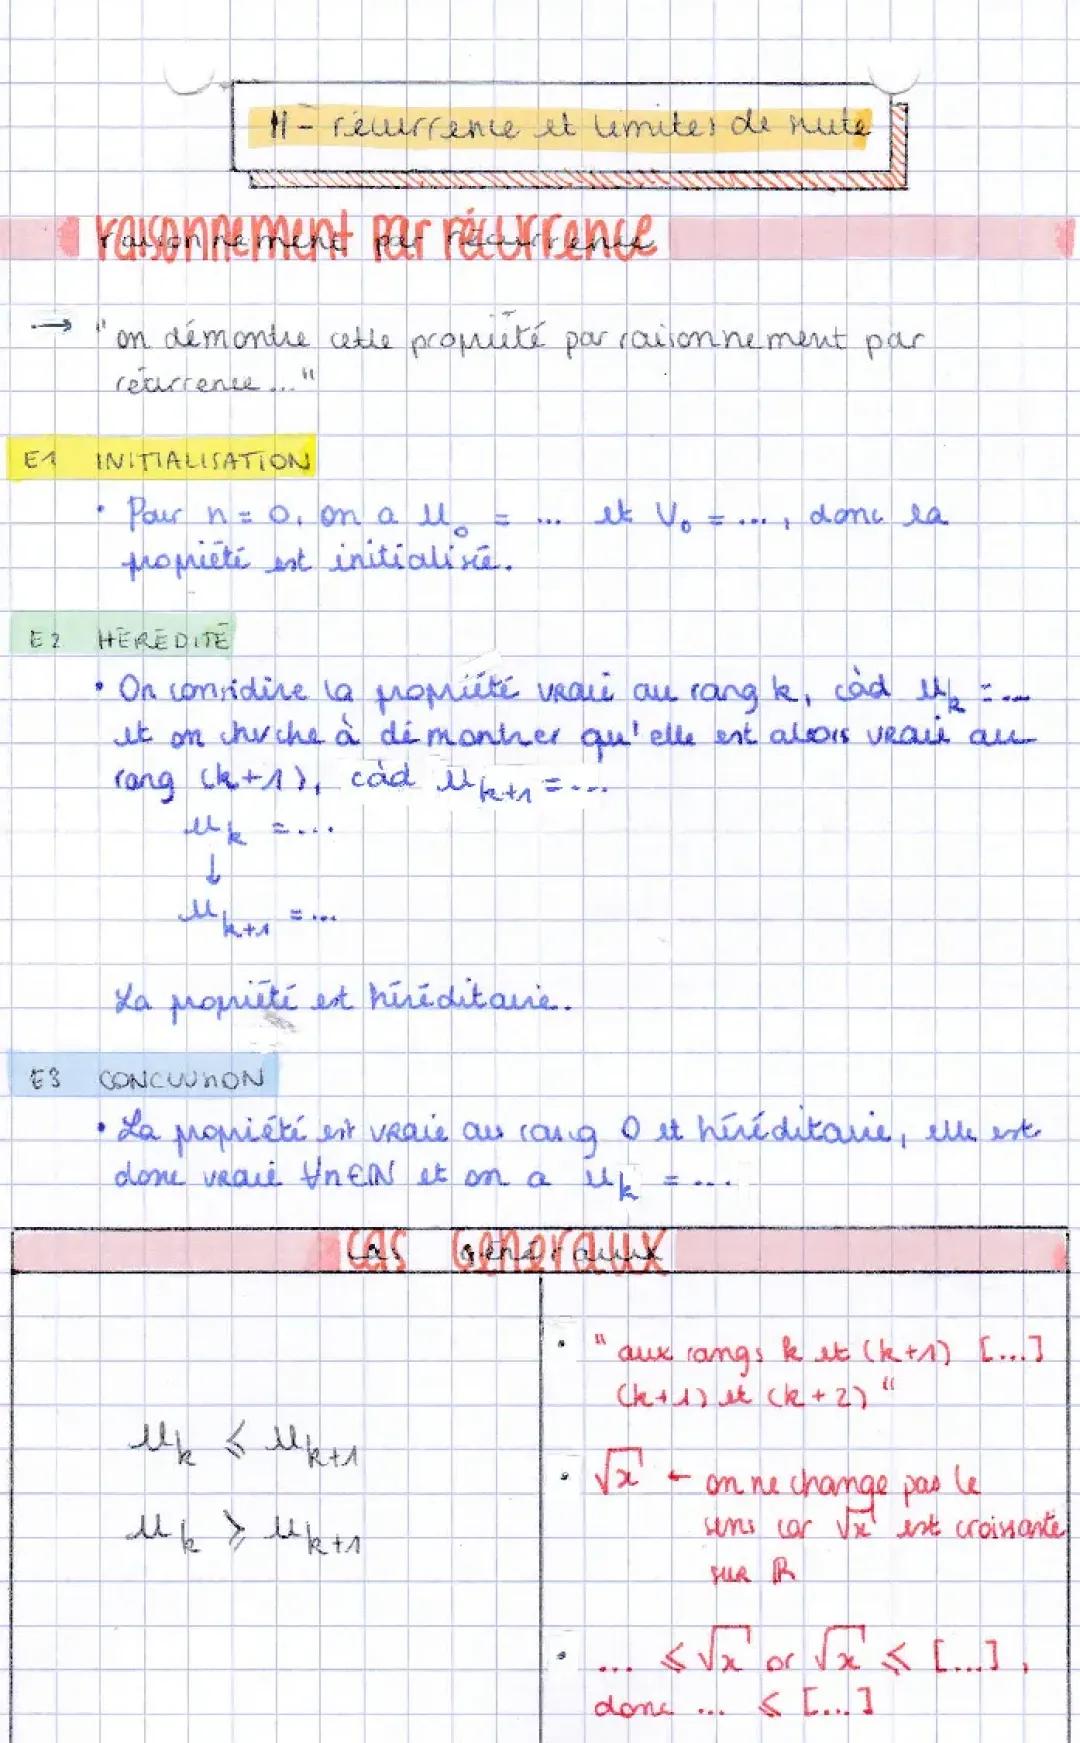 11 - récurrence et limites de suite
raisonnement par récurrence
→ "on démontre cette propriété par raisonnement par
récurrence ..."
E1 INITIALISATION
• Pour n = 0, on a u₀ = ... et V₀ = ..., donc la
propriété est initialisée.
E2 HÉRÉDITÉ
• On considère la propriété vraie au rang k, càd uₖ = ...
et on cherche à démontrer qu'elle est alors vraie au
rang (k+1), càd uₖ₊₁ = ...
uₖ = ...
↓
uₖ₊₁ = ...
La propriété est héréditaire.
E3 CONCLUSION
• La propriété est vraie au rang 0 et héréditaire, elle est
donc vraie ∀n∈ℕ et on a uₖ = ...
cas généraux
uₖ ⩽ uₖ₊₁
uₖ ⩾ uₖ₊₁
• "aux rangs k et (k+1) [...]
(k+1) et (k+2)"
• √x ← on ne change pas le
sens car √x est croissante
sur ℝ
• ... ⩽ √x or √x ⩽ [...],
donc ... ⩽ [...]